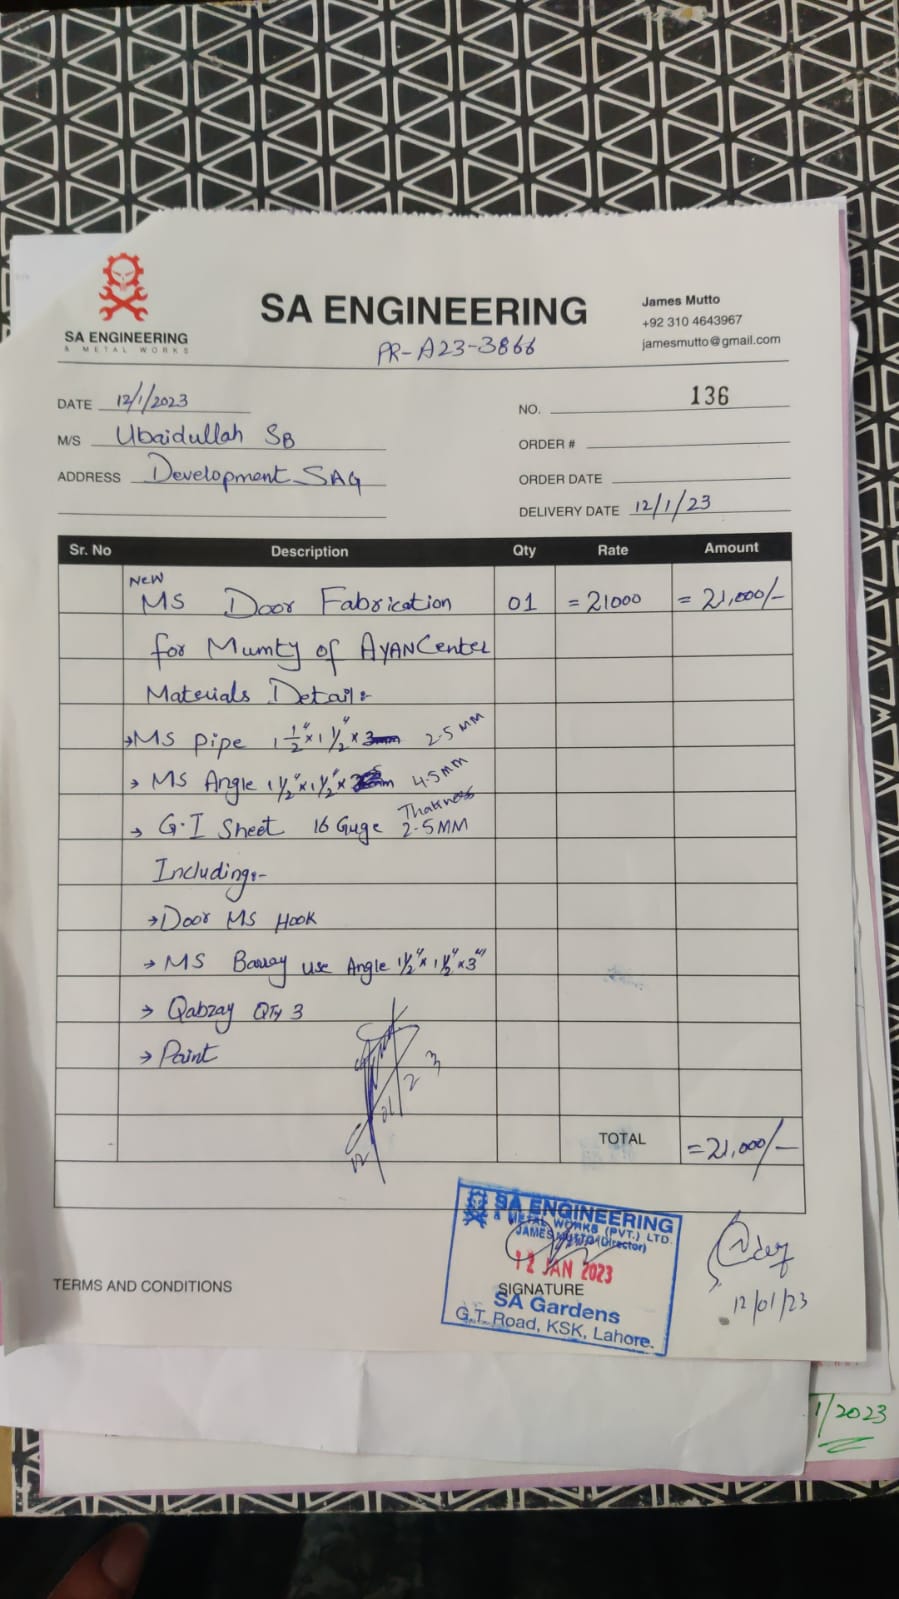 SA ENGINEERING
& METAL WORKS
SA ENGINEERING
PR-A23-3866
James Mutto
+92 310 4643967
jamesmutto@gmail.com
DATE 12/1/2023
NO. 136
M/S Ubaidullah SB
ORDER #
ADDRESS Development SAG
ORDER DATE
DELIVERY DATE 12/1/23
Sr. No Description Qty Rate Amount
New
MS Door Fabrication 01 =21000 =21,000/-
for Mumty of AYAN Center
Materials Detail:-
→MS Pipe 1 1/2"x1 1/2"x 2.5MM
→ MS Angle 1 1/2"x1 1/2"x 4.5MM
→ G.I Sheet 16 Guge Thakness 2.5MM
Including:-
→Door MS Hook
→ MS use Angle 1 1/2"x 1 1/2"x3"
→ Qabzay QTY 3
→ Paint
12/01/23
TOTAL =21,000/-
SA ENGINEERING
& METAL WORKS (PVT.) LTD.
JAMES MUTTO (Director)
12 JAN 2023
SIGNATURE
SA Gardens
G.T. Road, KSK, Lahore.
12/01/23
TERMS AND CONDITIONS
1/2023